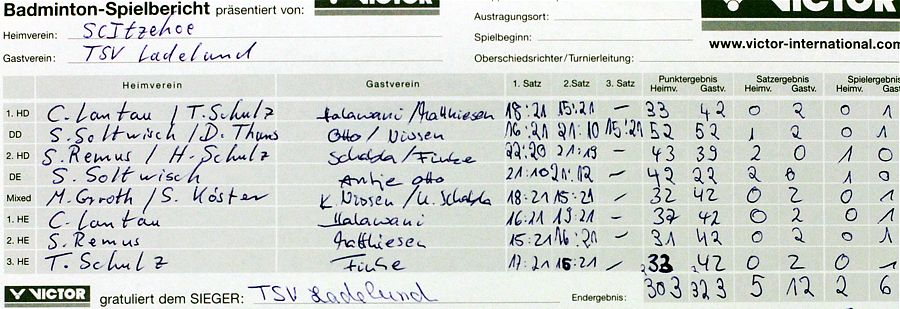 Badminton-Spielbericht präsentiert von: VICTOR
Heimverein: SC Itzehoe
Gastverein: TSV Ladelund
Austragungsort:
Spielbeginn:
Oberschiedsrichter / Turnierleitung:
VICTOR
www.victor-international.com
Heimverein Gastverein 1. Satz 2. Satz 3. Satz Punktergebnis Heimv. Gastv. Satzergebnis Heimv. Gastv. Spielergebnis Heimv. Gastv.
1. HD C. Lantau / T. Schulz Halawani/Matthiesen 18:21 15:21 – 33 42 0 2 0 1
DD S. Soltwisch / D. Thams Otto / Nissen 16:21 21:10 15:21 52 52 1 2 0 1
2. HD S. Remus / H. Schulz Schalda/Finke 22:20 21:19 – 43 39 2 0 1 0
DE S. Soltwisch Antje Otto 21:10 21:12 – 42 22 2 0 1 0
Mixed M. Groth / S. Köster K. Nissen / U. Schalda 18:21 15:21 – 32 42 0 2 0 1
1. HE C. Lantau Halawani 16:21 19:21 – 37 42 0 2 0 1
2. HE S. Remus Matthiesen 15:21 16:21 – 31 42 0 2 0 1
3. HE T. Schulz Finke 17:21 16:21 – 33 42 0 2 0 1
VICTOR gratuliert dem SIEGER: TSV Ladelund Endergebnis: 303 323 5 12 2 6